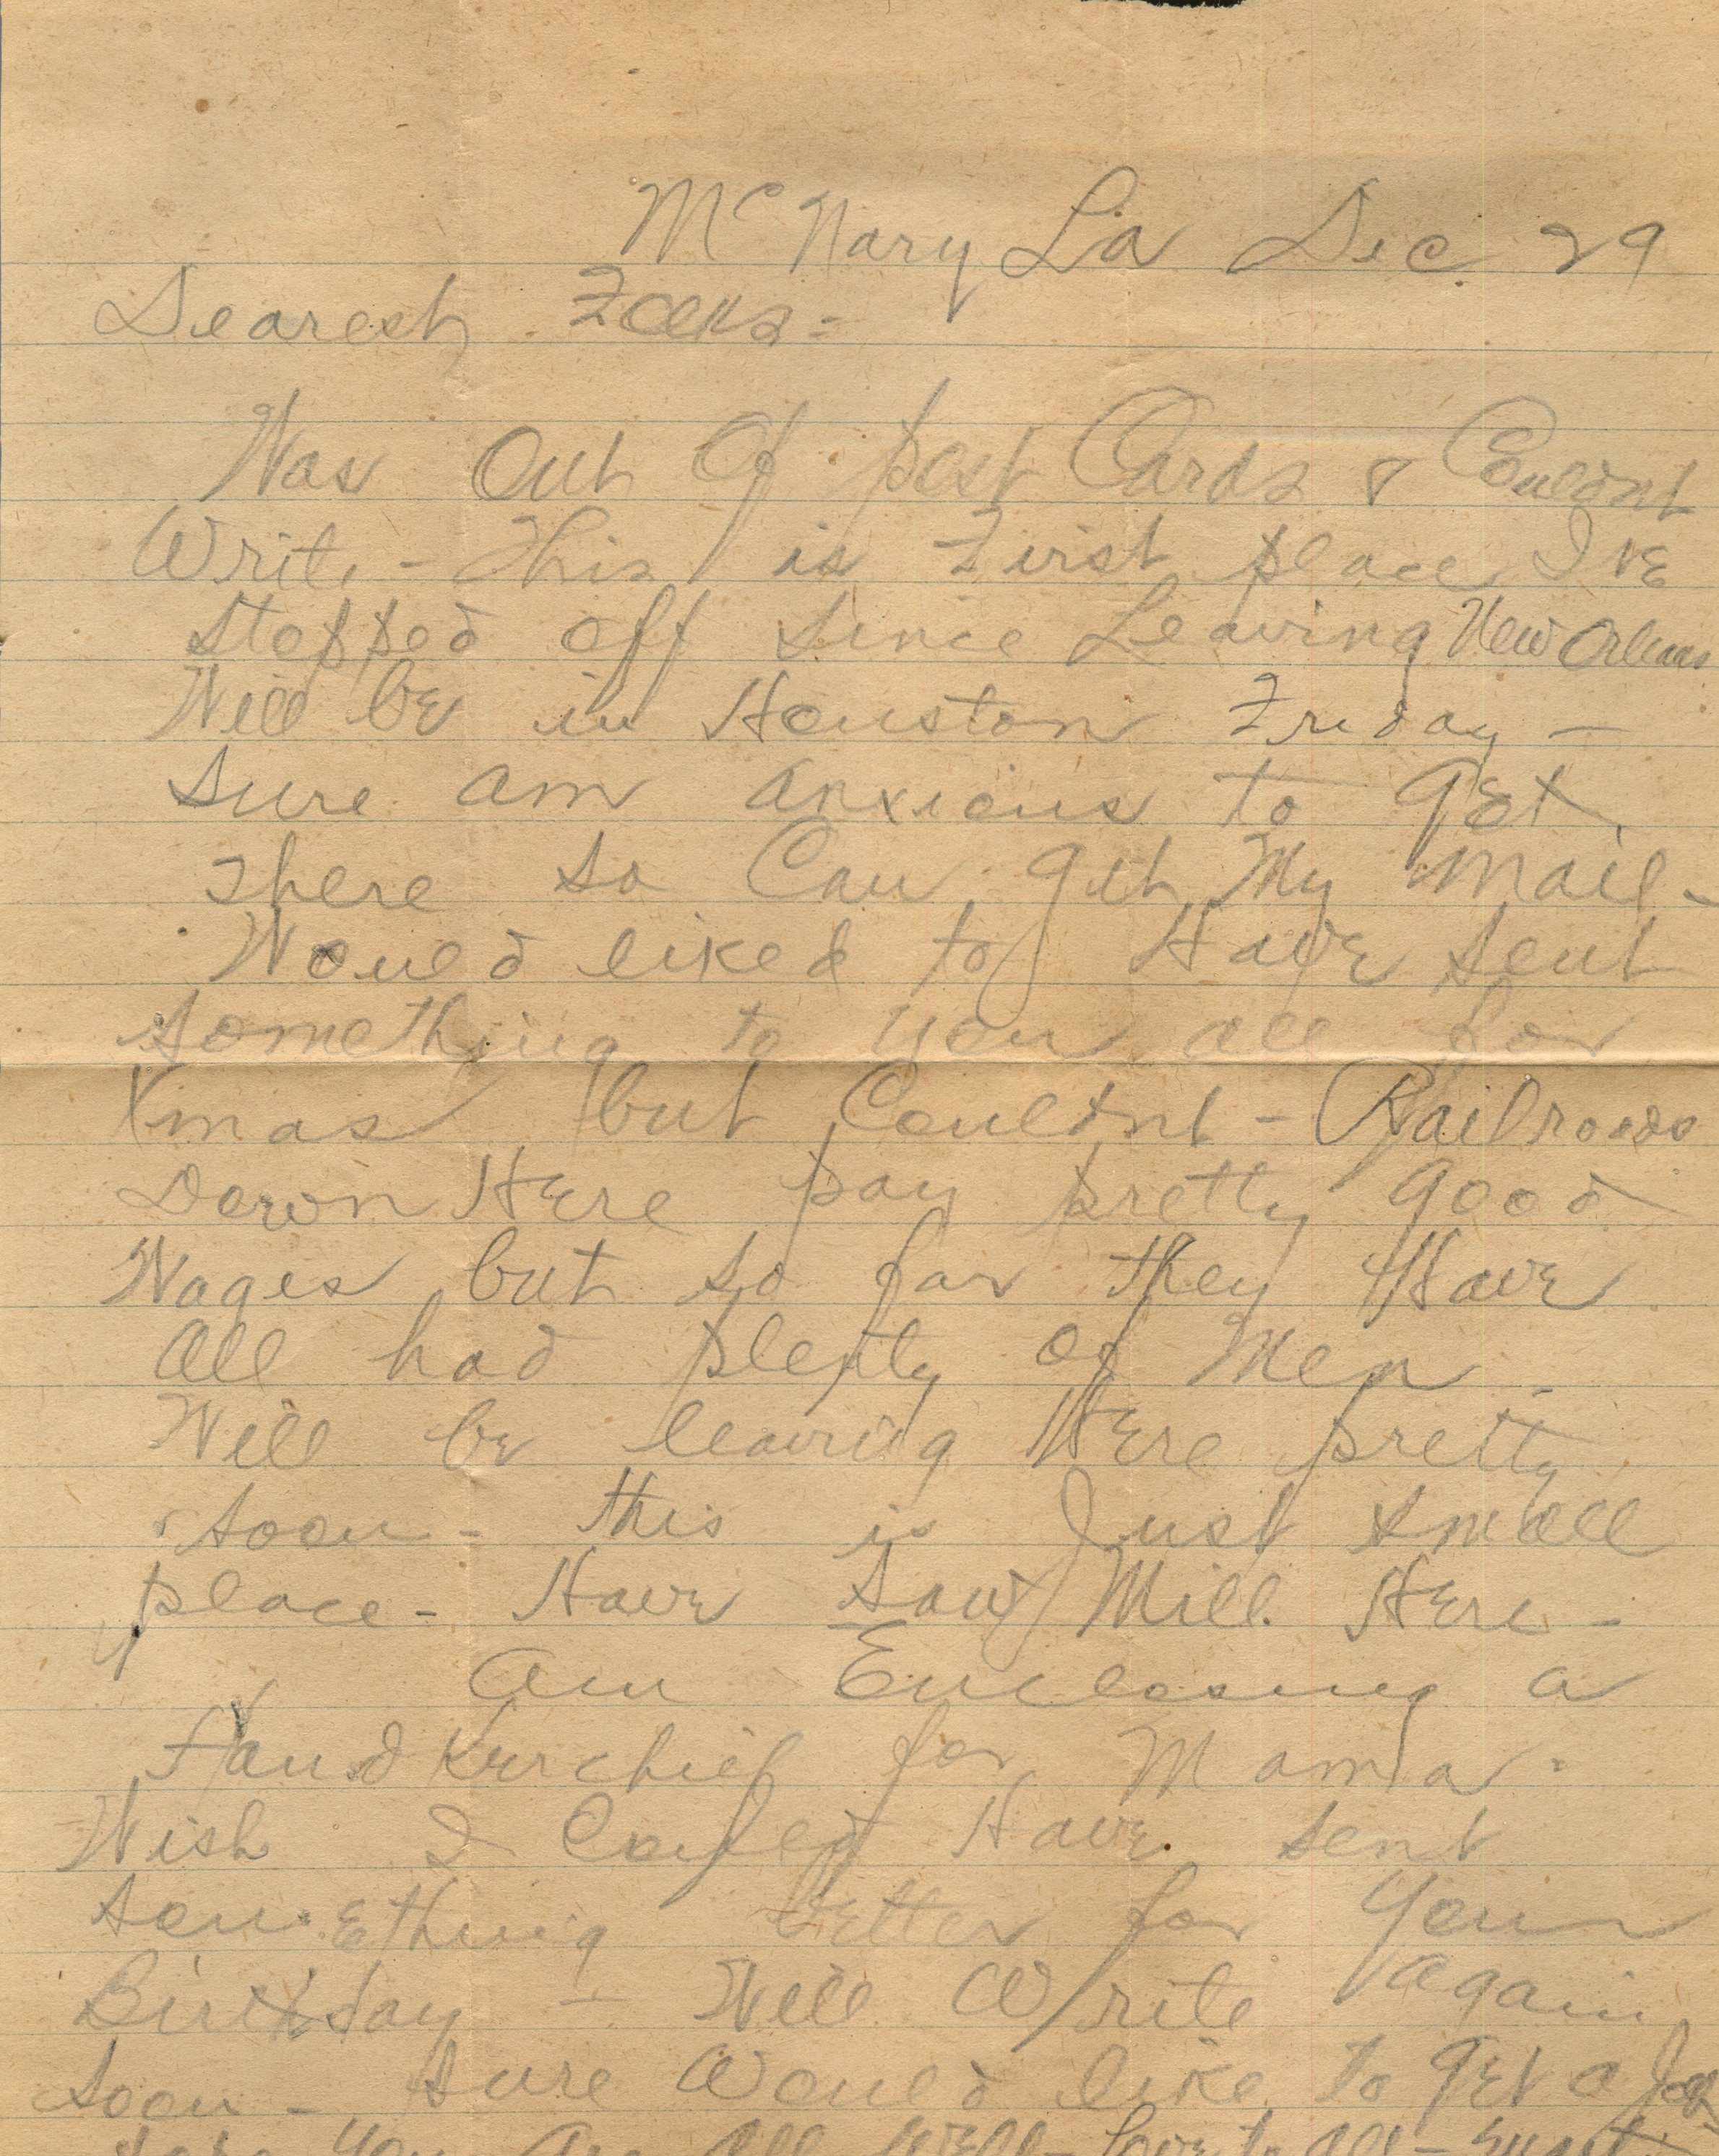 McNary La Dec 29
Dearest Folks =
Was Out Of post Cards & Couldnt
Write - This is First place I've
stopped off since Leaving New Orleans
Will be in Houston Friday -
Sure am anxious to get
there so Can get My mail -
Would liked to Have sent
something to you all for
Xmas but Couldnt - Railroads
Down Here pay pretty good
Wages but so far they Have
All had plenty of Men -
Will be leaving Here pretty
soon - this is Just small
place - Have Saw Mill Here -
Am Enclosing a
Handkerchief for Mama -
Wish I Could Have sent
something better for Your
Birthday - Will Write again
soon - Sure Would like to get a Job -
You Are All Well - Love to All -